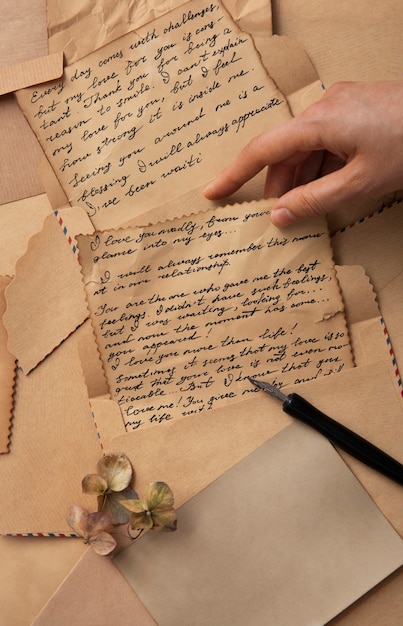 Every day comes with challenges,
but my love for you is cons-
tant. Thank you for being a
reason to smile. I can't explain
my love for you, but I feel
how strong it is inside me.
Seeing you around me is a
blessing I will always appreciate
I've been waiti
I love you madly, from your
glance into my eyes...
I will always remember this mome
nt in our relationship.
You are the one who gave me the best
feelings. I didn't have such feelings,
but I was waiting, looking for...
and now the moment has come...
you appeared!
I love you more than life!
Sometimes it seems that my love is so
great that your love is not even no
ticeable. But I know that you
love me! You give me joy and
my life